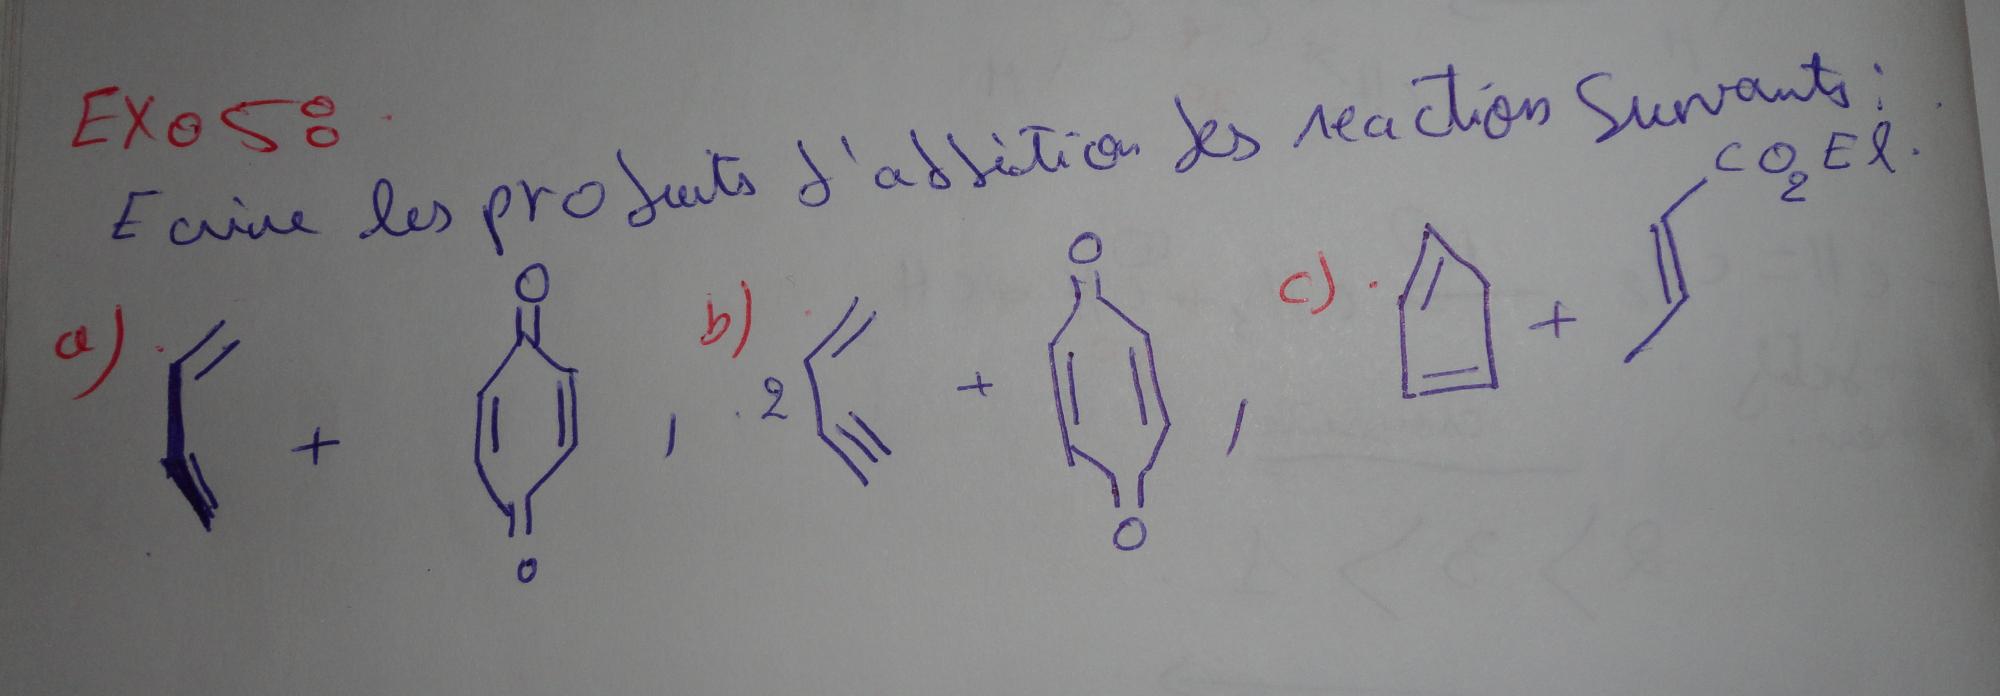 EXO 5:
Ecrire les produits d'addition des reaction Suivants:
CO2Et.
a) + O O , b) 2 + O O , c) +